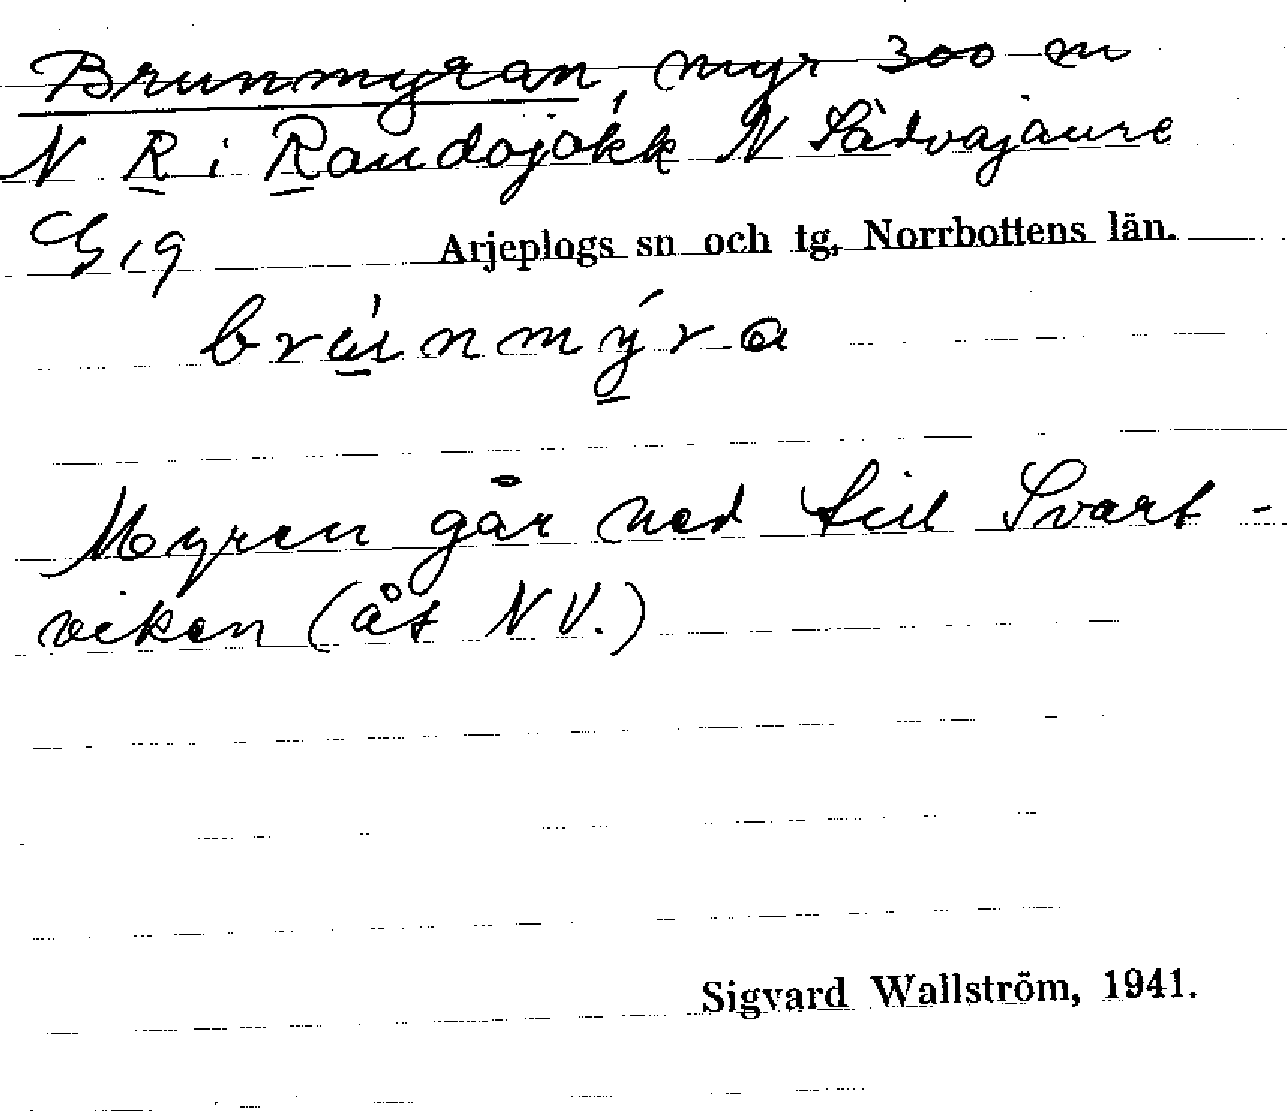 Brunmyran, myr 300 m
N R i Raudojokk N Sädvajaure
G 19 Arjeplogs sn och tg, Norrbottens län.
brúnmýra
Myren går ned till Svart-
viken (åt NV.)
Sigvard Wallström, 1941.